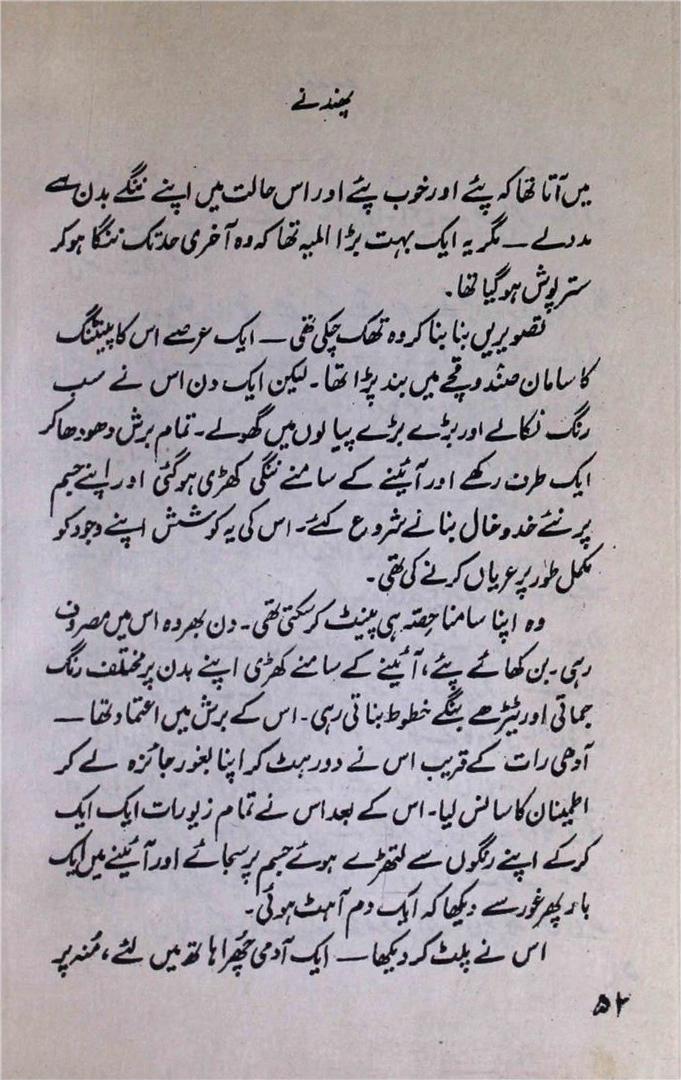 پھندنے
میں آتا تھا کہ پئے اور خوب پئے اور اس حالت میں اپنے ننگے بدن سے
مدد لے ــ مگر یہ ایک بہت بڑا المیہ تھا کہ وہ آخری حد تک ننگا ہو کر
ستر پوش ہو گیا تھا۔
تصویریں بنا بنا کر وہ تھک چکی تھی ــ ایک عرصے اس کا پینٹنگ
کا سامان صندوقچے میں بند پڑا تھا۔ لیکن ایک دن اس نے سب
رنگ نکالے اور بڑے بڑے پیالوں میں گھولے۔ تمام برش دھو دھا کر
ایک طرف رکھے اور آئینے کے سامنے ننگی کھڑی ہو گئی اور اپنے جسم
پر نئے خدوخال بنانے شروع کئے۔ اس کی یہ کوشش اپنے وجود کو
مکمل طور پر عریاں کرنے کی تھی۔
وہ اپنا سامنا حِصہ ہی پینٹ کر سکتی تھی۔ دن بھر وہ اس میں مصروف
رہی۔ بن کھائے پئے، آئینے کے سامنے کھڑی اپنے بدن پر مختلف رنگ
جماتی اور ٹیڑھے بنگے خطوط بناتی رہی۔ اس کے برش میں اعتماد تھا ــ
آدھی رات کے قریب اس نے دور ہٹ کر اپنا بغور جائزہ لے کر
اطمینان کا سانس لیا۔ اس کے بعد اس نے تمام زیورات ایک ایک
کر کے اپنے رنگوں سے لتھڑے ہوئے جسم پر سجائے اور آئینے میں ایک
بار پھر غور سے دیکھا کہ ایک دم آہٹ ہوئی۔
اس نے پلٹ کر دیکھا ــ ایک آدمی چُھرا ہاتھ میں لئے، مُنہ پر
۵۲